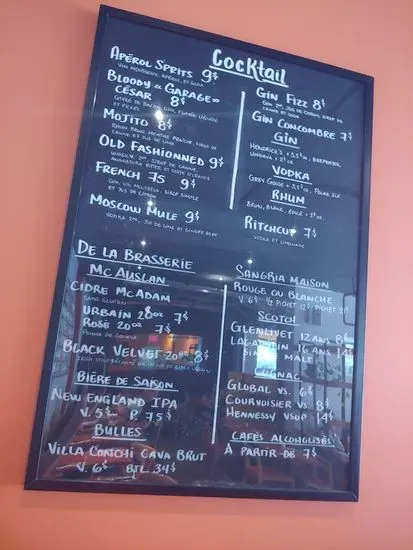 Cocktail
Apérol Sprits 9$
Vin mousseux, Apérol et soda
Bloody « Garage »
César 8$
Givre de bacon, gin,
et pickel
Mojito 8$
Rhum brun, menthe fraîche, sirop de
canne et jus de lime
Old Fashionned 9$
Whisky 2oz, sirop de canne,
Angostura bitter et zeste d'orange
French 75 9$
Gin, vin mousseux, sirop simple
et jus de citron
Moscow Mule 9$
Vodka 2oz, jus de lime et ginger beer
Gin Fizz 8$
Gin 2oz, jus de citron, sirop de
canne et soda
Gin Concombre 7$
Gin
Hendrick's + 3.5$/oz, Beefeater,
Ungava + 2$/oz
Vodka
Grey Goose + 3.5$/oz, Polar Ice
Rhum
Brun, blanc, épicé + 2$/oz
Ritchcup 7$
Vodka et limonade
De la Brasserie
McAuslan
Cidre McAdam
Sans gluten
Urbain 20oz 7$
Rosé 20oz 7$
Pomme de Geneva
Black Velvet 20oz 8$
Bière de Saison
New England IPA
V. 5$ P. 7.5$
Bulles
Villa Conchi Cava Brut
V. 6$ Btl. 34$
Sangria Maison
Rouge ou Blanche
V. 6$ ½ Pichet 12$ Pichet 21$
Scotch
Glenlivet 12 ans 8$
Lagavulin 16 ans 14$
Single Malt
Cognac
Global VS. 6$
Courvoisier VS. 8$
Hennessy VSOP 14$
Cafés Alcoholisés
À partir de 7$